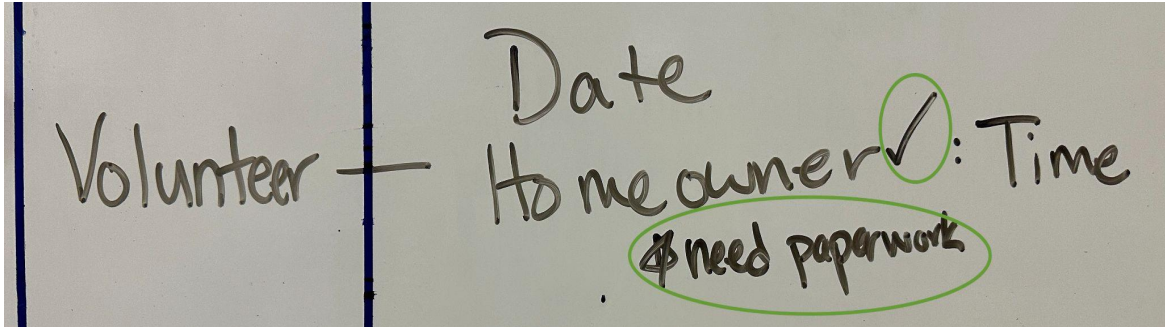 Date
Volunteer — Homeowner ✓: Time
* need paperwork